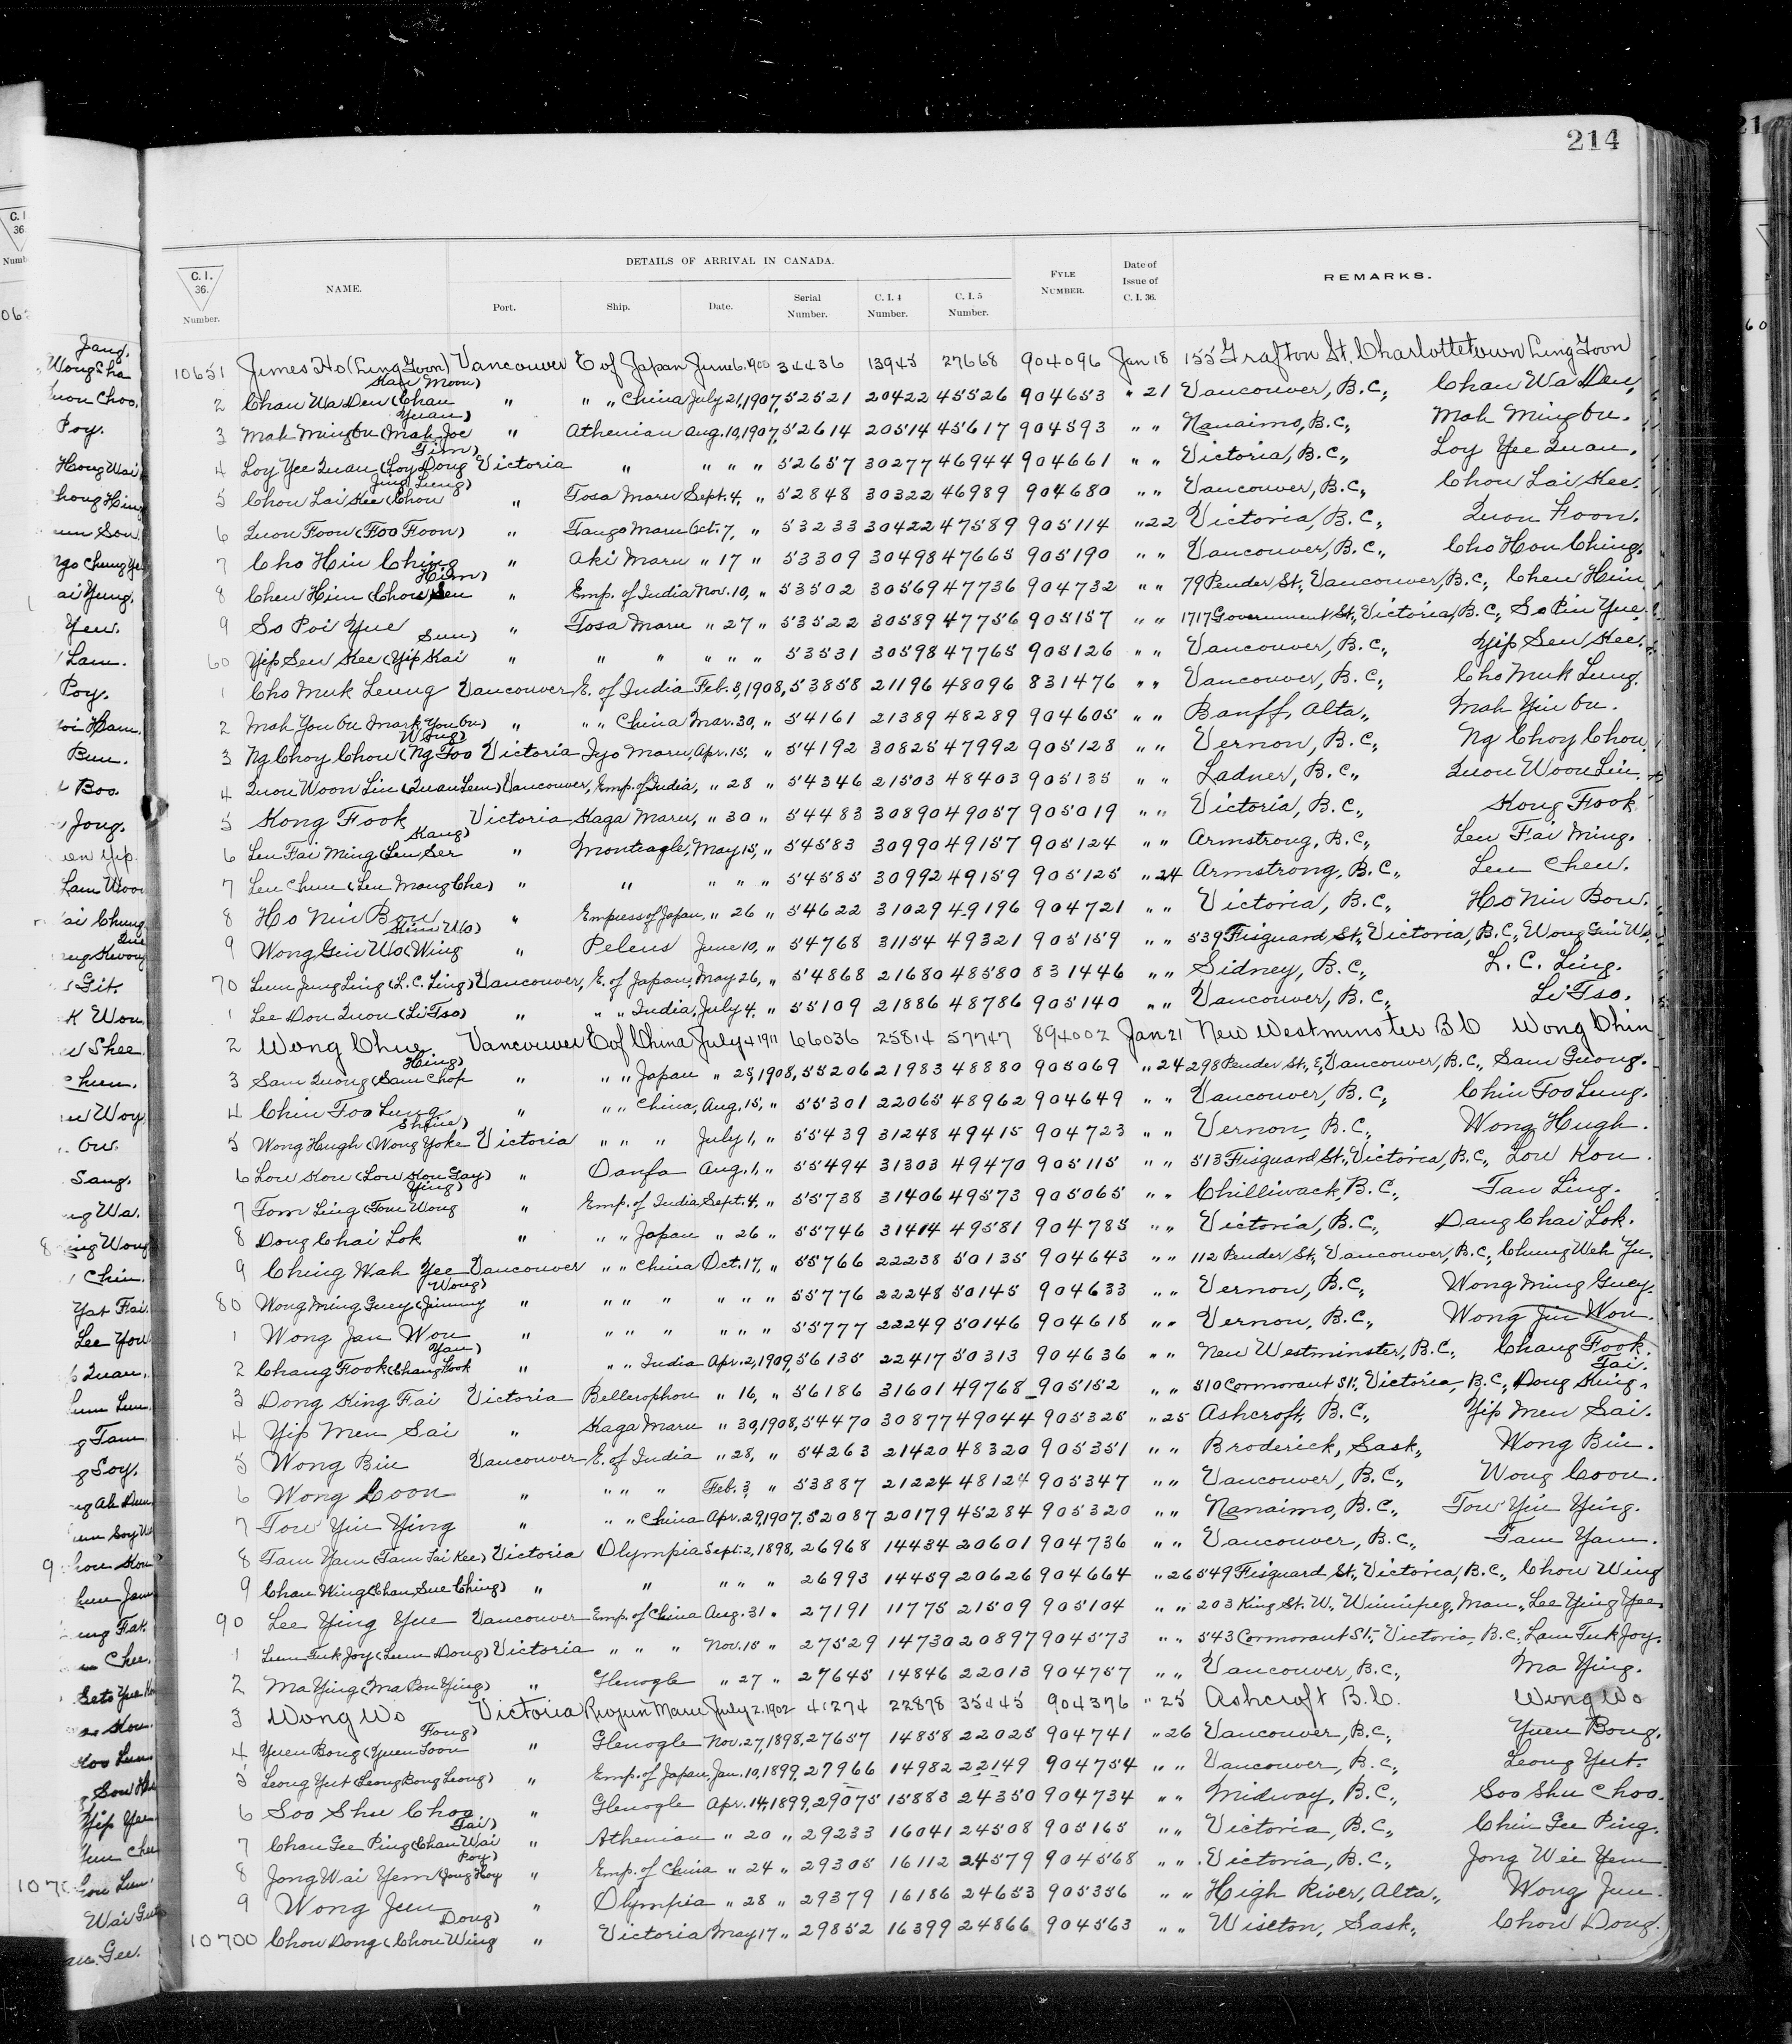 214
C. I. 36. Number.
NAME.
DETAILS OF ARRIVAL IN CANADA.
Port. Ship. Date. Serial Number. C. I. 4 Number. C. I. 5 Number.
FYLE NUMBER.
Date of Issue of C. I. 36.
REMARKS.
10651 James Ho (Ling Toon) Vancouver E of Japan June 6, 1900 34436 13945 27668 904096 Jan 18 155 Grafton St. Charlottetown Ling Toon
2 Chan Wa Den (Chan Kau Moon) " " " China July 21, 1907, 52521 20422 45526 904653 " 21 Vancouver, B.C., Chan Wa Den,
3 Mah Ming Ou (Mah Joe Yuan) " Athenian Aug. 10, 1907, 52614 20514 45617 904593 " " Nanaimo, B.C., Mah Ming Ou.
4 Loy Yee Quan (Loy Dong Tim) Victoria " " " " 52657 30277 46944 904661 " " Victoria, B.C., Loy Yee Quan.
5 Chou Lai Kee (Chou Jing Lung) " Tosa Maru Sept. 4, " 52848 30322 46989 904680 " " Vancouver, B.C., Chou Lai Kee.
6 Quon Foon (Foo Foon) " Tango Maru Oct. 7, " 53233 30422 47589 905114 " 22 Victoria, B.C., Quon Foon.
7 Cho Hin Ching " Aki Maru " 17 " 53309 30498 47665 905190 " " Vancouver, B.C., Cho Hon Ching.
8 Chew Him (Chow Sen Him) " Emp. of India Nov. 10, " 53502 30569 47736 904732 " " 79 Pender St., Vancouver, B.C., Chew Him
9 So Poi Yue " Tosa Maru " 27 " 53522 30589 47756 905157 " " 1717 Government St., Victoria, B.C., So Pin Yue.
60 Yip Sen Kee (Yip Kai Sun) " " " " " " 53531 30598 47765 905126 " " Vancouver, B.C., Yip Sen Kee.
1 Cho Muk Leung Vancouver E. of India Feb. 3, 1908, 53858 21196 48096 831476 " " Vancouver, B.C., Cho Muk Lung.
2 Mah You Ou (Mark You Ou) " " " China Mar. 30, " 54161 21389 48289 904605 " " Banff, Alta., Mah Yiu Ou.
3 Ng Choy Chou (Ng Foo Wong) Victoria Iyo Maru, Apr. 15, " 54192 30825 47992 905128 " " Vernon, B.C., Ng Choy Chou
4 Quon Woon Lin (Quan Lem) Vancouver, Emp. of India, " 28 " 54346 21503 48403 905135 " " Ladner, B.C., Quon Woon Lin.
5 Kong Fook Victoria Kaga Maru, " 30 " 54483 30890 49057 905019 " " Victoria, B.C., Kong Fook
6 Leu Fai Ming (Leu Ser Kang) " Monteagle, May 15, " 54583 30990 49157 905124 " " Armstrong, B.C., Leu Fai Ming.
7 Leu Chuu (Leu Mong Che) " " " " " 54585 30992 49159 905125 " 24 Armstrong, B.C., Leu Chew.
8 Ho Nin Bow " Empress of Japan, " 26 " 54622 31029 49196 904721 " " Victoria, B.C., Ho Nin Bow.
9 Wong Gin Wo (Wing Kim Wo) " Peleus June 10, " 54768 31154 49321 905159 " " 539 Fisguard St., Victoria, B.C., Wong Gin Wo.
70 Lum Jung Ling (L.C. Ling) Vancouver, E. of Japan, May 26, " 54868 21680 48580 831446 " " Sidney, B.C., L. C. Ling.
1 Lee Don Quon (Li Tso) " " " India, July 4, " 55109 21886 48786 905140 " " Vancouver, B.C., Li Tso.
2 Wong Chue Vancouver E of China July 4 1911 66036 25814 57747 894002 Jan 21 New Westminster B C Wong Chin
3 Sam Quong (Sam Chop Hing) " " " Japan " 25, 1908, 55206 21983 48880 905069 " 24 298 Pender St., E, Vancouver, B.C., Sam Guong.
4 Chin Foo Lung " " " China, Aug. 15, " 55301 22065 48962 904649 " " Vancouver, B.C., Chin Foo Lung.
5 Wong Hugh (Wong Yoke Shue) Victoria " " " July 1, " 55439 31248 49415 904723 " " Vernon, B.C., Wong Hugh.
6 Lou Kou (Lou Kou Gay) " Oanfa Aug. 1, " 55494 31303 49470 905115 " " 513 Fisguard St., Victoria, B.C., Low Kou.
7 Tom Ling (Tom Wong Ying) " Emp. of India Sept. 4, " 55738 31406 49573 905065 " " Chilliwack, B.C., Tan Ling.
8 Dong Chai Lok " " " Japan " 26 " 55746 31414 49581 904785 " " Victoria, B.C., Dang Chai Lok.
9 Ching Wah Yee Vancouver " " China Oct. 17, " 55766 22238 50135 904643 " " 112 Pender St., Vancouver, B.C., Chung Weh Yu.
80 Wong Ming Guey (Jimmy Wong) " " " " " " " 55776 22248 50145 904633 " " Vernon, B.C., Wong Ming Guey.
1 Wong Jan Wou " " " " " " " 55777 22249 50146 904618 " " Vernon, B.C., Wong Jin Wou.
2 Chang Fook (Chang Fook Yau) " " " India Apr. 2, 1909, 56135 22417 50313 904636 " " New Westminster, B.C. Chang Fook.
3 Dong King Fai Victoria Bellerophon " 16, " 56186 31601 49768 905152 " " 510 Cormorant St., Victoria, B.C., Dong King Fai.
4 Yip Men Sai " Kaga Maru " 30, 1908, 54470 30877 49044 905325 " 25 Ashcroft, B.C., Yip Men Sai.
5 Wong Bin Vancouver E. of India " 28, " 54263 21420 48320 905351 " " Broderick, Sask., Wong Bin.
6 Wong Coon " " " " Feb. 3, " 53887 21224 48124 905347 " " Vancouver, B.C., Wong Coon.
7 Tow Yin Ying " " " China Apr. 29, 1907, 52087 20179 45284 905320 " " Nanaimo, B.C., Tow Yin Ying.
8 Tam Yam (Tam Sai Kee) Victoria Olympia Sept. 2, 1898, 26968 14434 20601 904736 " " Vancouver, B.C., Tam Yam.
9 Chan Wing (Chan Sue Ching) " " " " " 26993 14459 20626 904664 " 26 549 Fisguard St., Victoria, B.C., Chou Wing
90 Lee Ying Yue Vancouver Emp. of China Aug. 31 " 27191 11775 21509 905104 " " 203 King St. W., Winnipeg, Man., Lee Ying Yee
1 Lum Tuk Joy (Lum Dong) Victoria " " " Nov. 15 " 27529 14730 20897 904573 " " 543 Cormorant St., Victoria, B.C., Lam Tuk Joy.
2 Ma Ying (Ma Pon Ying) " Glenogle " 27 " 27645 14846 22013 904757 " " Vancouver, B.C., Ma Ying.
3 Wong Wo Victoria Riojun Maru July 2, 1902 41274 22878 35445 904376 " 25 Ashcroft B.C. Wong Wo
4 Yuen Bong (Yuen Toon Fong) " Glenogle Nov. 27, 1898, 27657 14858 22025 904741 " 26 Vancouver, B.C., Yuen Bong.
5 Leong Yut (Leong Bong Leong) " Emp. of Japan, Jan. 10, 1899, 27966 14982 22149 904754 " " Vancouver, B.C., Leong Yut.
6 Soo Shu Choo " Glenogle Apr. 14, 1899, 29075 15883 24350 904734 " " Midway, B.C., Soo Shu Choo.
7 Chan Gee Ping (Chan Wai Tai) " Athenian " 20 " 29233 16041 24508 905165 " " Victoria, B.C., Chin Gee Ping.
8 Jong Wai Yem (Jong Hoy Poy) " Emp. of China " 24 " 29305 16112 24579 904568 " " Victoria, B.C., Jong Wei Yem
9 Wong Jun " Olympia " 28 " 29379 16186 24653 905356 " " High River, Alta., Wong Jun.
10700 Chou Dong (Chou Wing Dong) " Victoria May 17 " 29852 16399 24866 904563 " " Wiseton, Sask., Chou Dong.